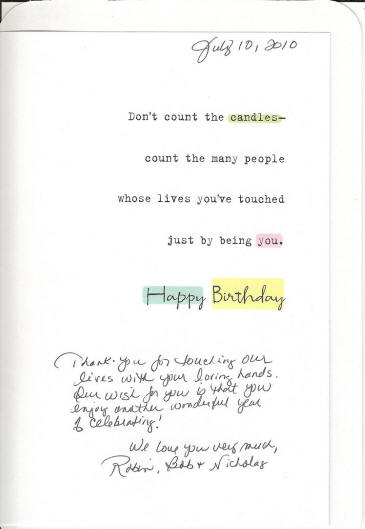 July 10, 2010
Don't count the candles—
count the many people
whose lives you've touched
just by being you.
Happy Birthday
Thank-you for touching our
lives with your loving hands.
Our wish for you is that you
enjoy another wonderful year
of celebrating!
We love you very much,
Robin, Bob + Nicholas